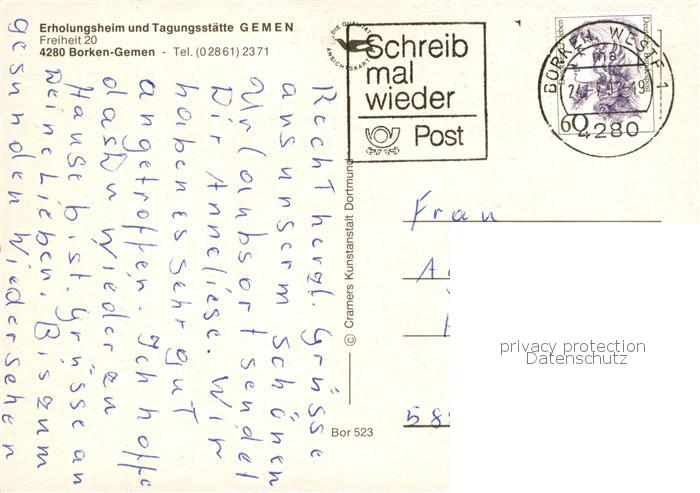 Erholungsheim und Tagungsstätte GEMEN
Freiheit 20
4280 Borken-Gemen - Tel. (02861) 2371
DIE QUALITÄTS
ANSICHTSKARTE
Schreib
mal
wieder
Post
BORKEN, WESTF 1
ma
-19
4280
60
Deutsche Bundespost
Recht herzl. Grüsse
aus unserm schönen
Urlaubsort sendet
Dir Anneliese. Wir
haben es sehr gut
angetroffen. Ich hoffe
das Du wieder zu
Hause bist. Grüsse an
Deine Lieben. Bis zum
gesunden Wiedersehen
© Cramers Kunstanstalt Dortmund
Bor 523
Frau
A
58
privacy protection
Datenschutz